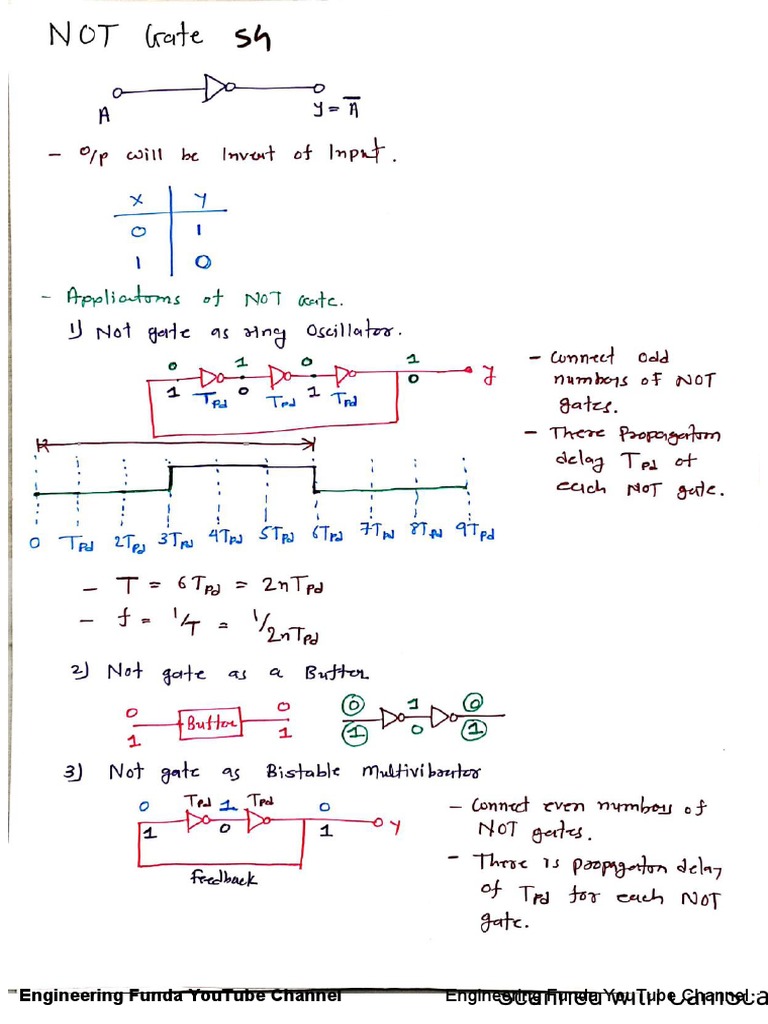 NOT Gate S4
A
Y = A̅
- O/P will be Invert of Input.
X Y
0 1
1 0
- Applications of NOT Gate.
1) Not gate as ring Oscillator.
0 1 0 1
1 Tpd 0 Tpd 1 Tpd 0 y
- Connect Odd
numbers of NOT
gates.
- There Propagation
delay Tpd of
each NOT gate.
0 Tpd 2Tpd 3Tpd 4Tpd 5Tpd 6Tpd 7Tpd 8Tpd 9Tpd
- T = 6Tpd = 2nTpd
- f = 1/T = 1/2nTpd
2) Not gate as a Buffer
0 Buffer 0
1 1
0 1 0
1 0 1
3) Not gate as Bistable Multivibrator
0 Tpd 1 Tpd 0
1 0 1 Y
feedback
- Connect even numbers of
NOT gates.
- There is propagation delay
of Tpd for each NOT
gate.
Engineering Funda YouTube Channel
Engineering Funda YouTube Channel
Scanned with CamSca